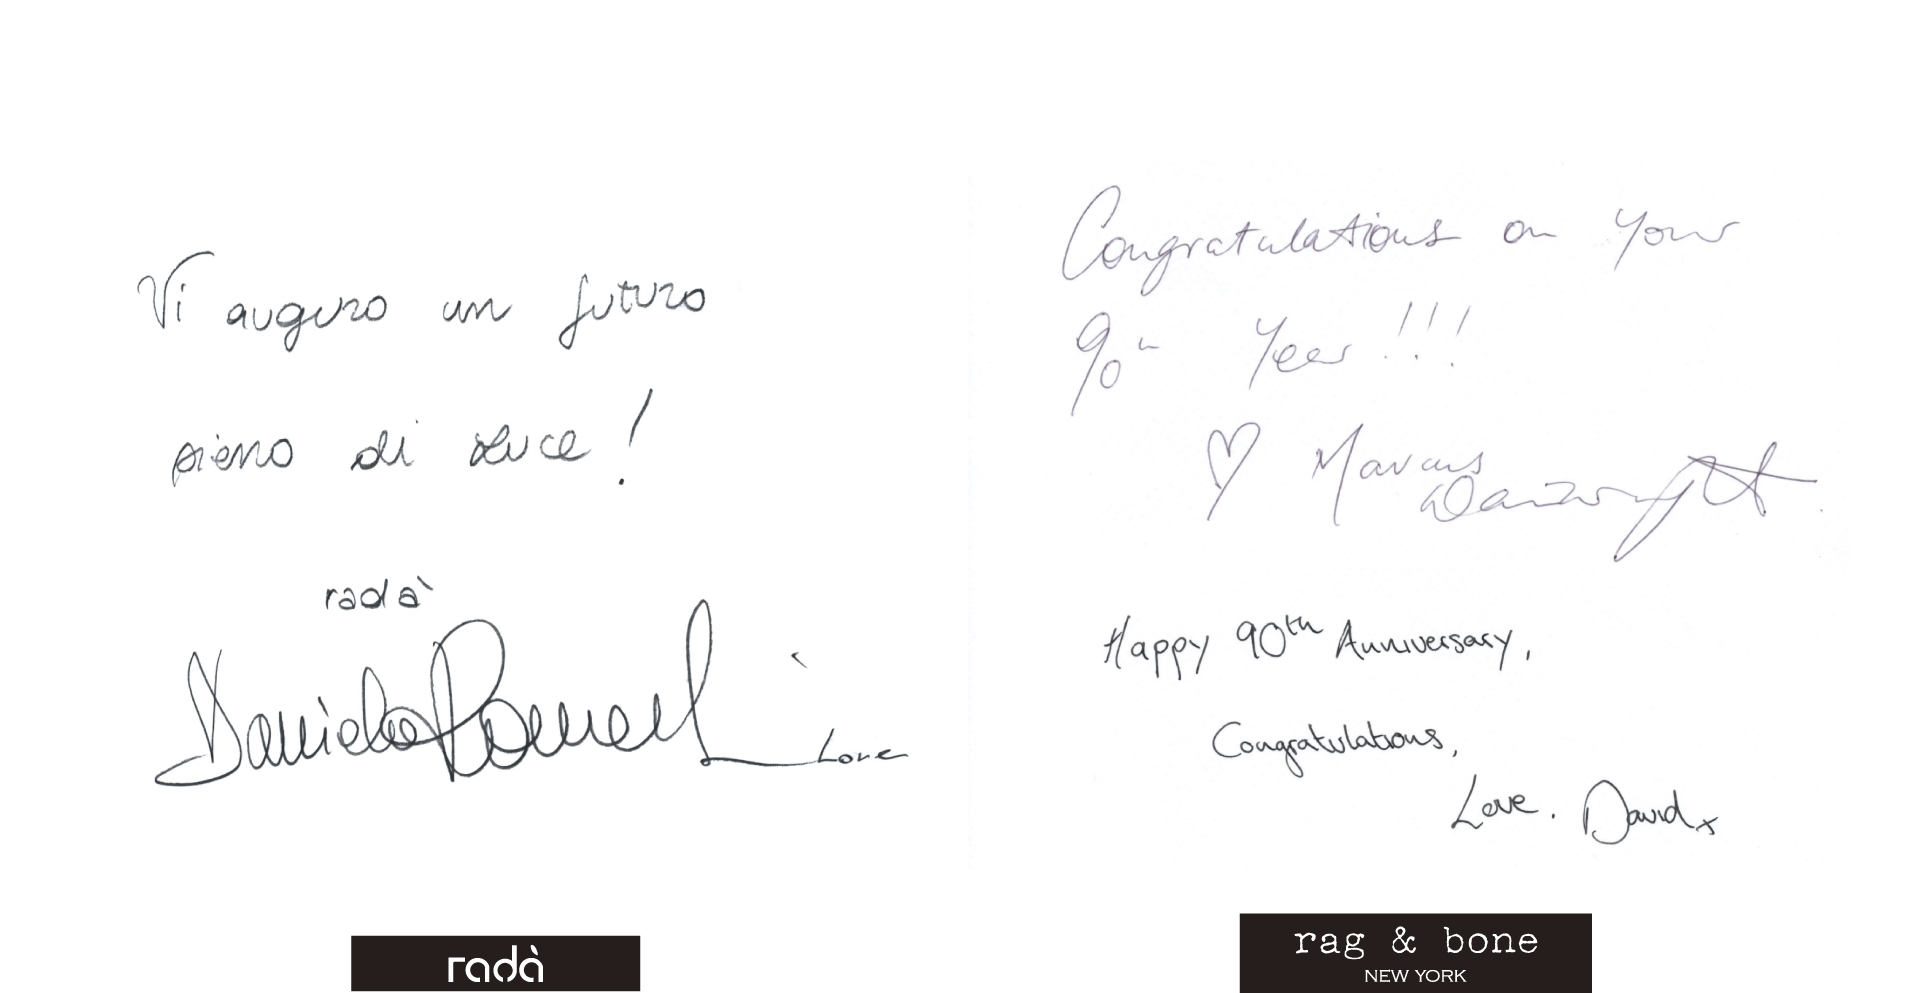 Vi auguro un futuro
pieno di luce!
radà
Love
radà
Congratulations on your
90th Year!!!
♡ Marcus
Wainwright
Happy 90th Anniversary,
Congratulations,
Love. David x
rag & bone
NEW YORK